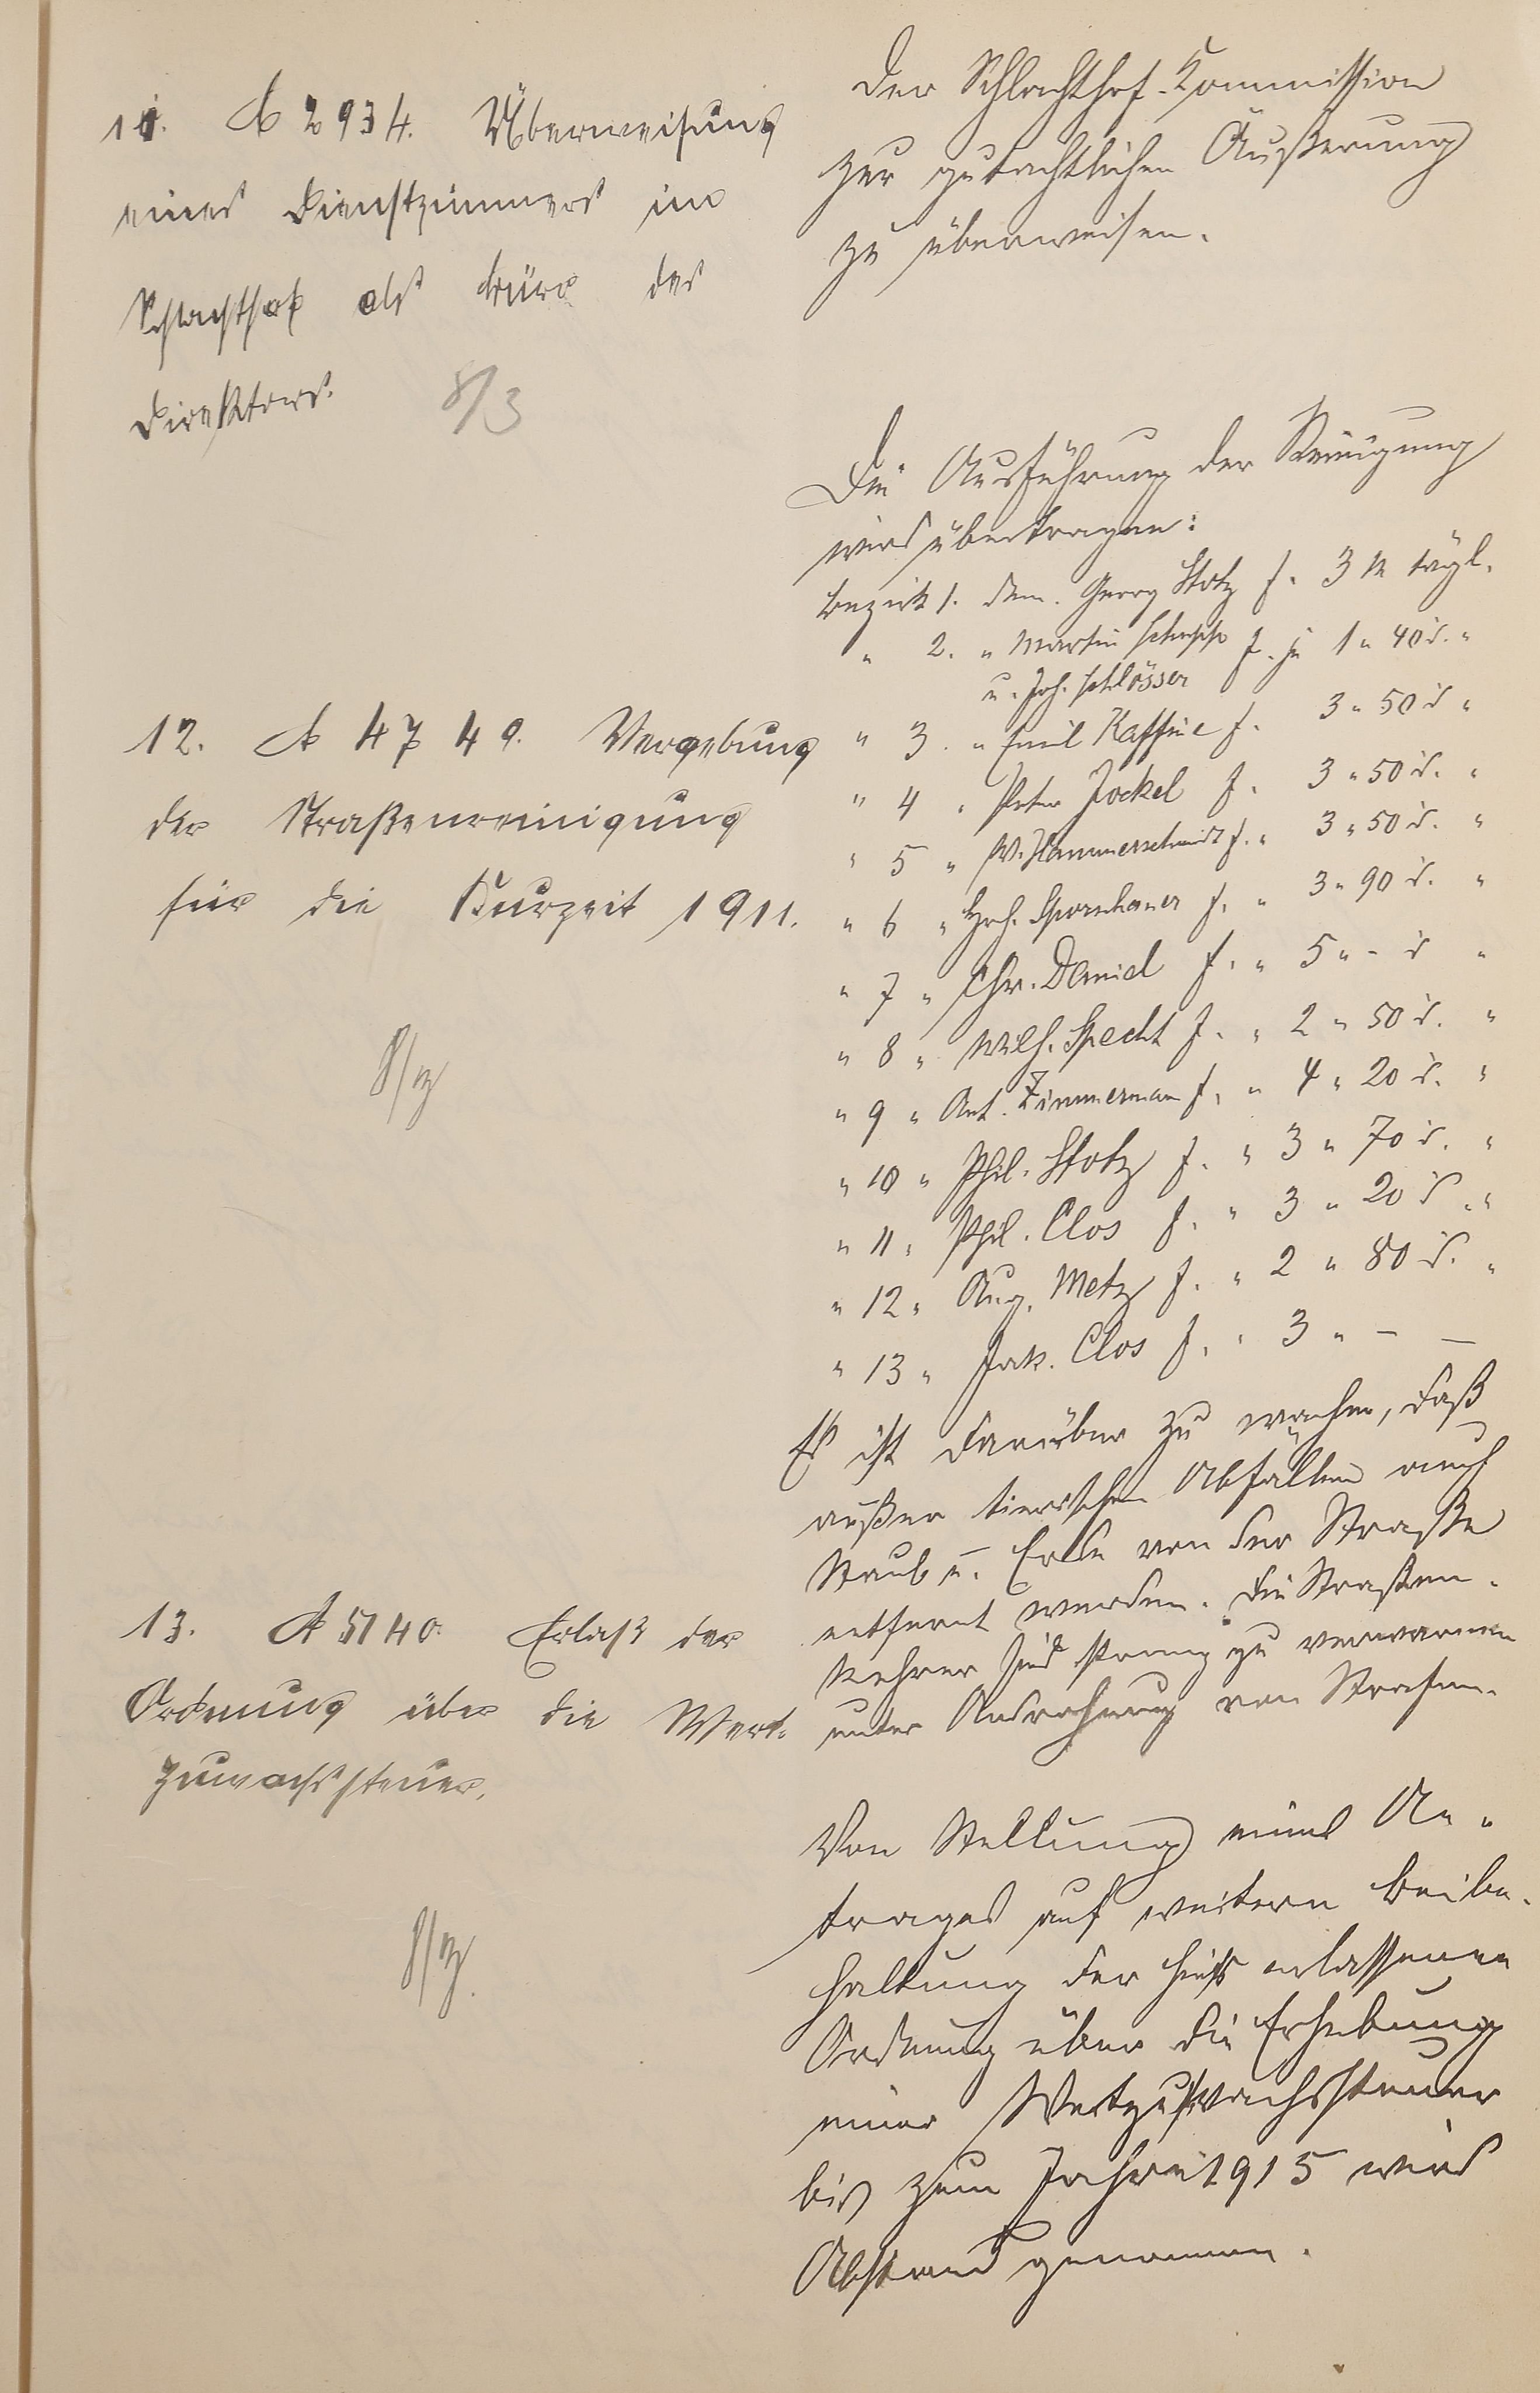 11. A 2934. Überweisung
eines Dienstzimmers im
Schlachthof als Büro des
Direktors.
8/3
Der Schlachthof-Kommission
zur gutachtlichen Äußerung
zu überweisen.
12. A 4749. Vergebung
der Straßenreinigung
für die Kurzeit 1911.
8/3
Die Ausführung der Reinigung
wird übertragen:
Bezirk 1. dem Georg Stotz f. 3 M tägl.
" 2. " Martin f. je 1 " 40 d. "
u. Joh. Schlösser
" 3. " Emil Kaffine f. 3 " 50 d "
" 4 " Peter Jockel f. 3 " 50 d. "
" 5 " W. Hammerschmidt f. " 3 " 50 d. "
" 6 " Hrch. Spornhauer f. " 3 " 90 d. "
" 7 " Chr. Daniel f. " 5 " - d "
" 8 " Wilh. Specht f. " 2 " 50 d. "
" 9 " Ant. Zimmerman f. " 4 " 20 d. "
" 10 " Phil. Stotz f. " 3 " 70 d. "
" 11 " Phil. Clos f. " 3 " 20 d. "
" 12 " Aug. Metz f. " 2 " 80 d. "
" 13 " Jak. Clos f. " 3 " – –
Es ist darüber zu wachen, daß
außer tierischen Abfällen auch
Staub u. Erde von der Straße
entfernt werden. Die Straßen-
kehrer sind streng zu verwarnen
unter Androhung von Strafen.
13. A 5140. Erlaß der
Ordnung über die Wert-
zuwachssteuer.
8/3.
Von Stellung eines An-
trages auf weitern Beibe-
haltung der hies. erlassenen
Ordnung über die Erhebung
einer Wertzuwachssteuer
bis zum Jahre 1915 wird
Abstand genommen.